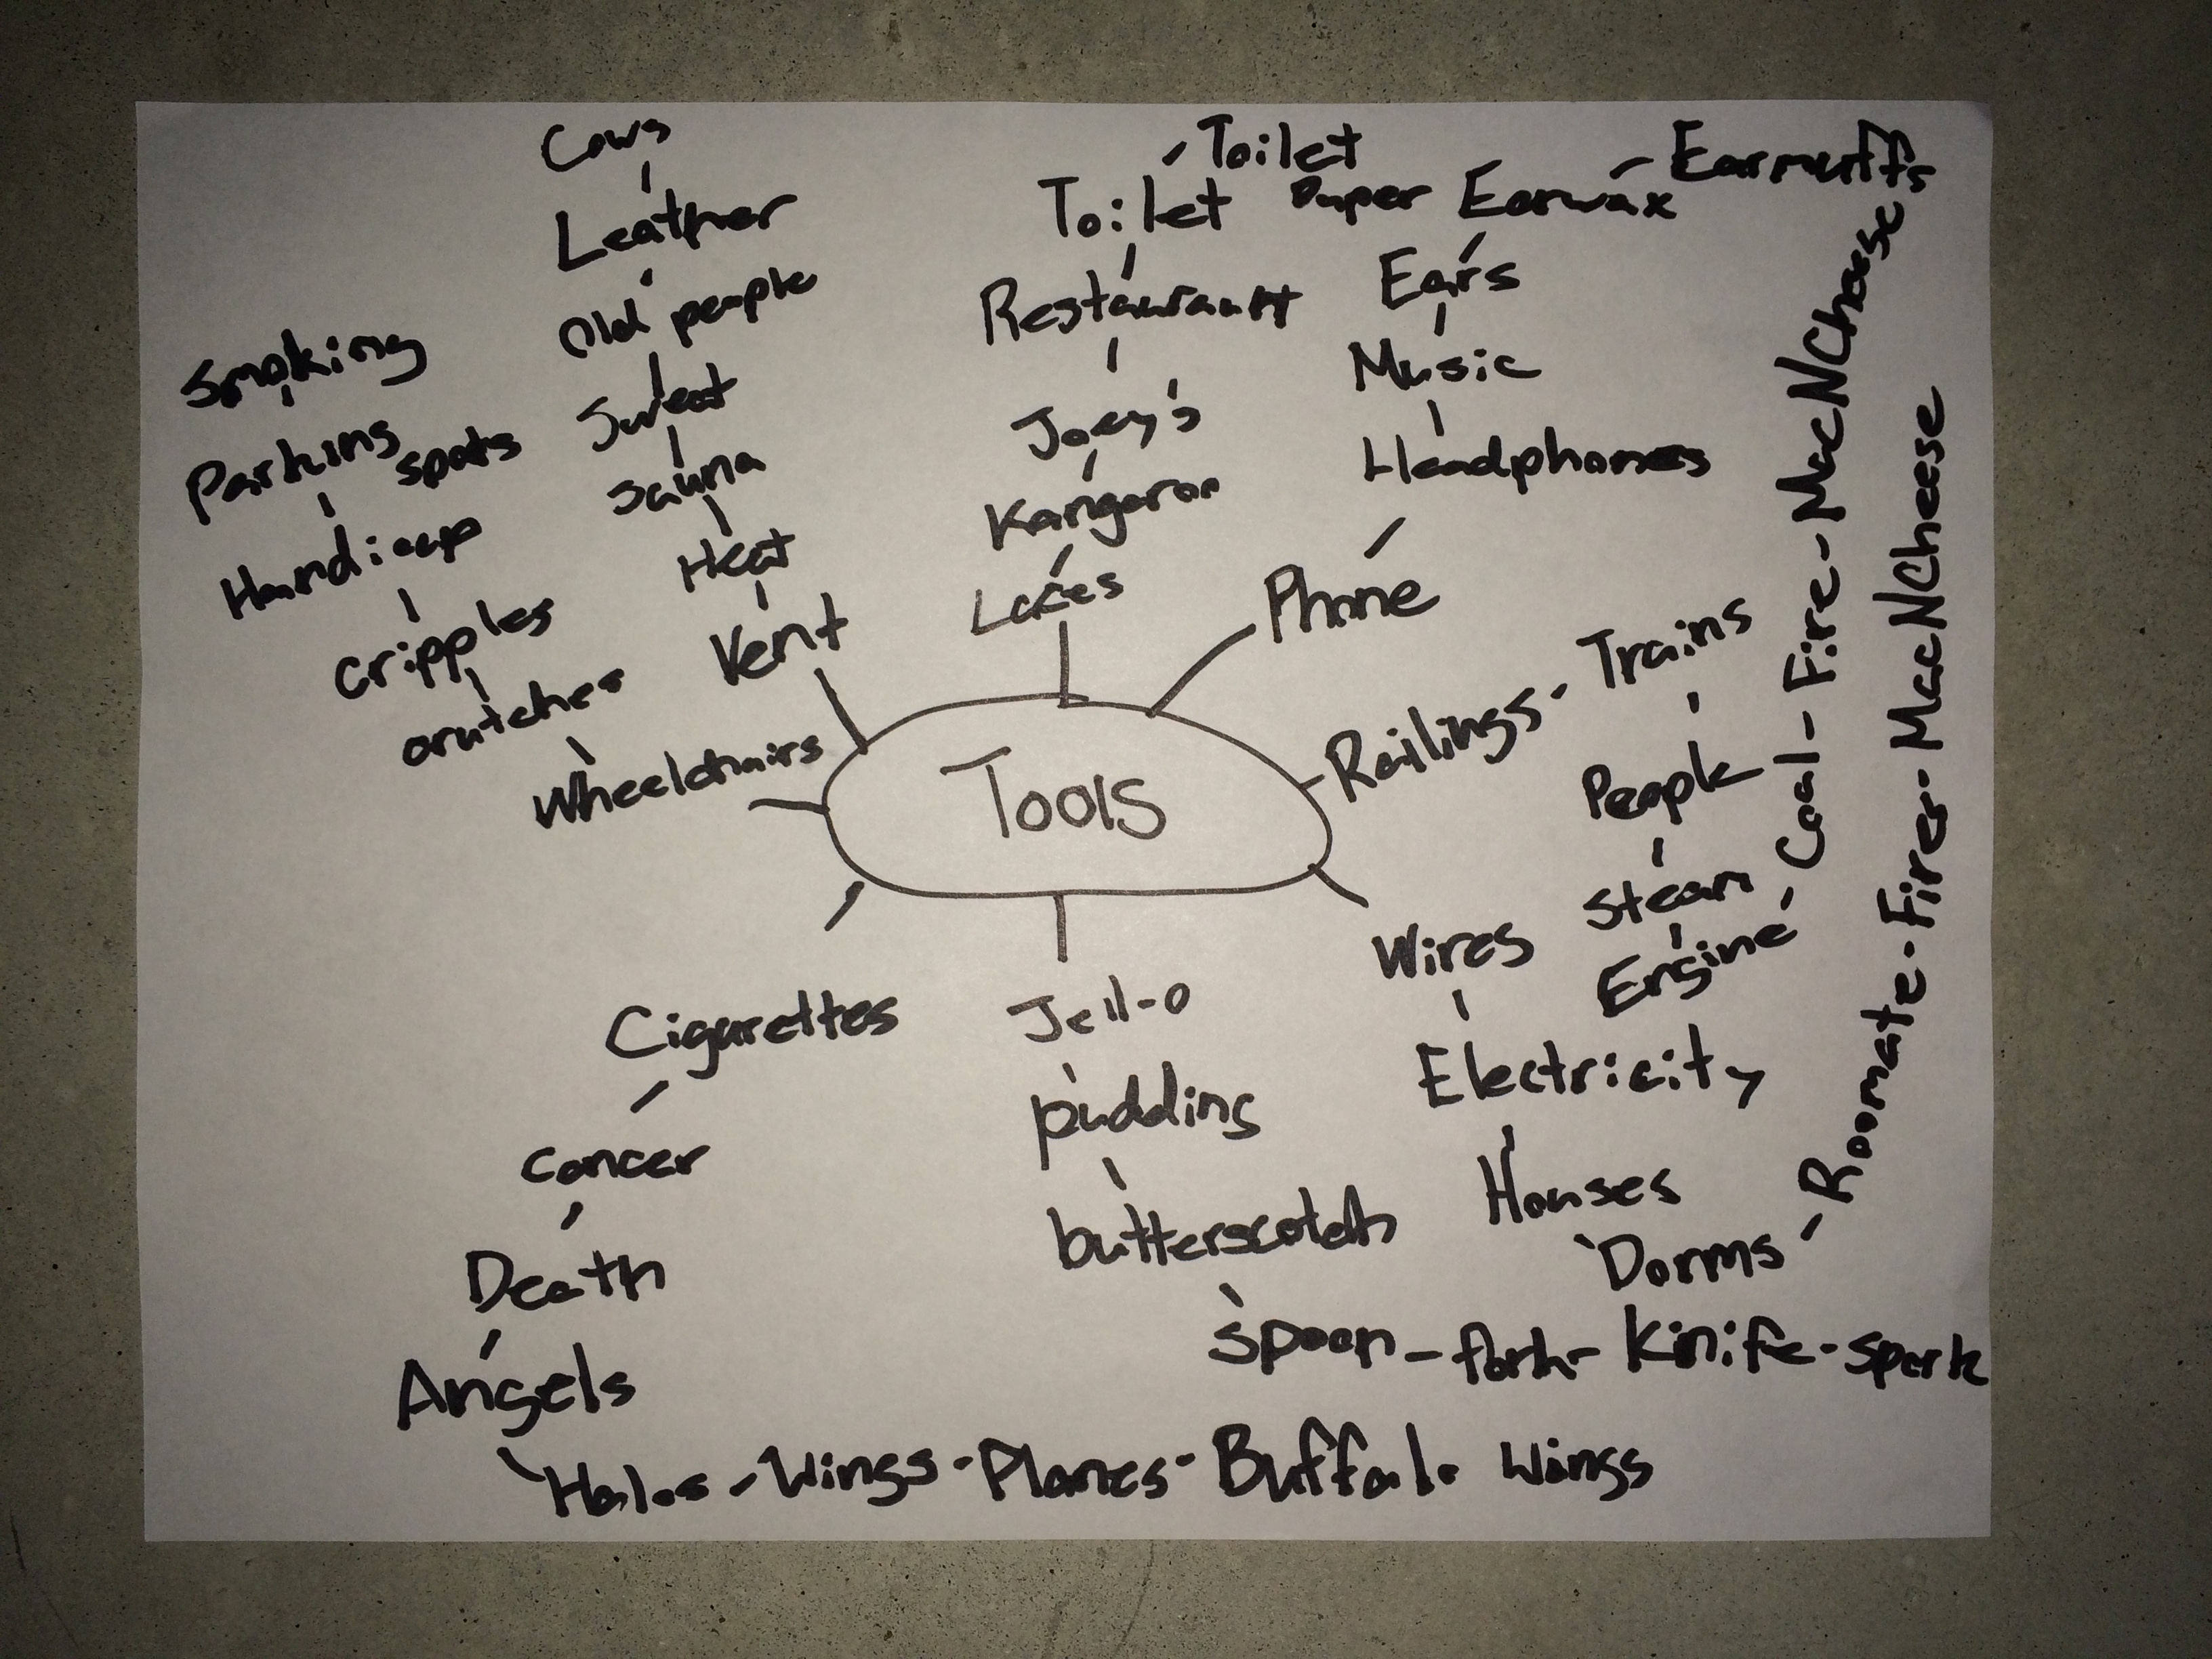 Tools
Vent
Heat
Sauna
Sweat
Old people
Leather
Cows
Laces
Kangaroo
Joey's
Restaurant
Toilet
Toilet
Paper
Phone
Headphones
Music
Ears
Earwax
Earmuffs
Railings - Trains
People
Steam
Engine - Coal - Fire - MacNCheese
Wires
Electricity
Houses
Dorms - Roomate - Fire - MacNCheese
Jell-o
pudding
butterscotch
spoon - fork - Kinife - spork
Cigarettes
cancer
Death
Angels
Halos - Wings - Planes - Buffalo Wings
Wheelchairs
crutches
cripples
Handicap
Parking
spots
Smoking